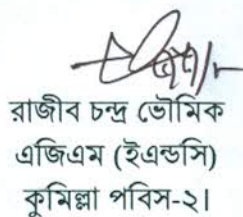 রাজীব চন্দ্র ভৌমিক
এজিএম (ইএন্ডসি)
কুমিল্লা পবিস-২।